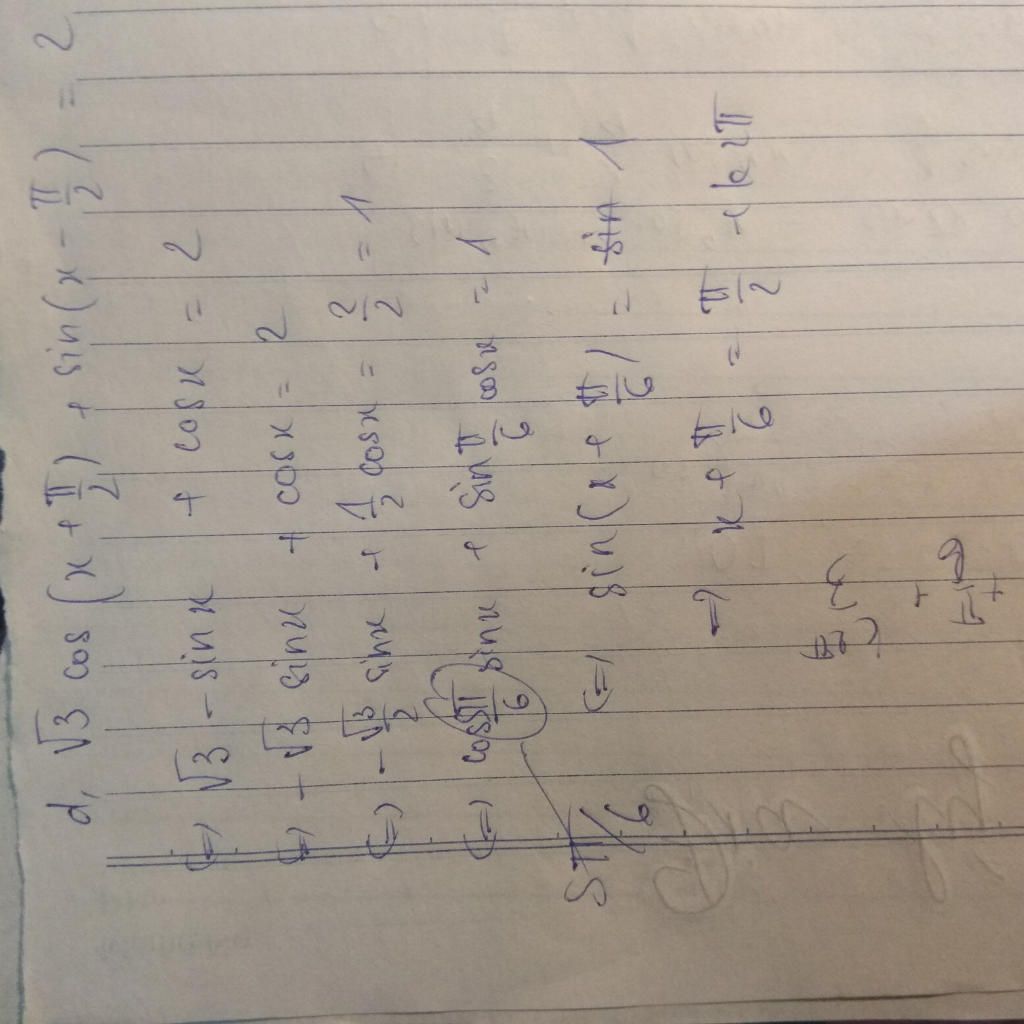 d, √3 cos (x + π/2) + sin(x - π/2) = 2
⇔ √3 - sin x + cos x = 2
⇔ - √3 sin x + cos x = 2
⇔ - √3/2 sin x + 1/2 cos x = 2/2 = 1
⇔ cos 5π/6 sin x + sin π/6 cos x = 1
5π/6
⇔ sin(x + π/6) = sin 1
⇒ x + π/6 = π/2 + k2π